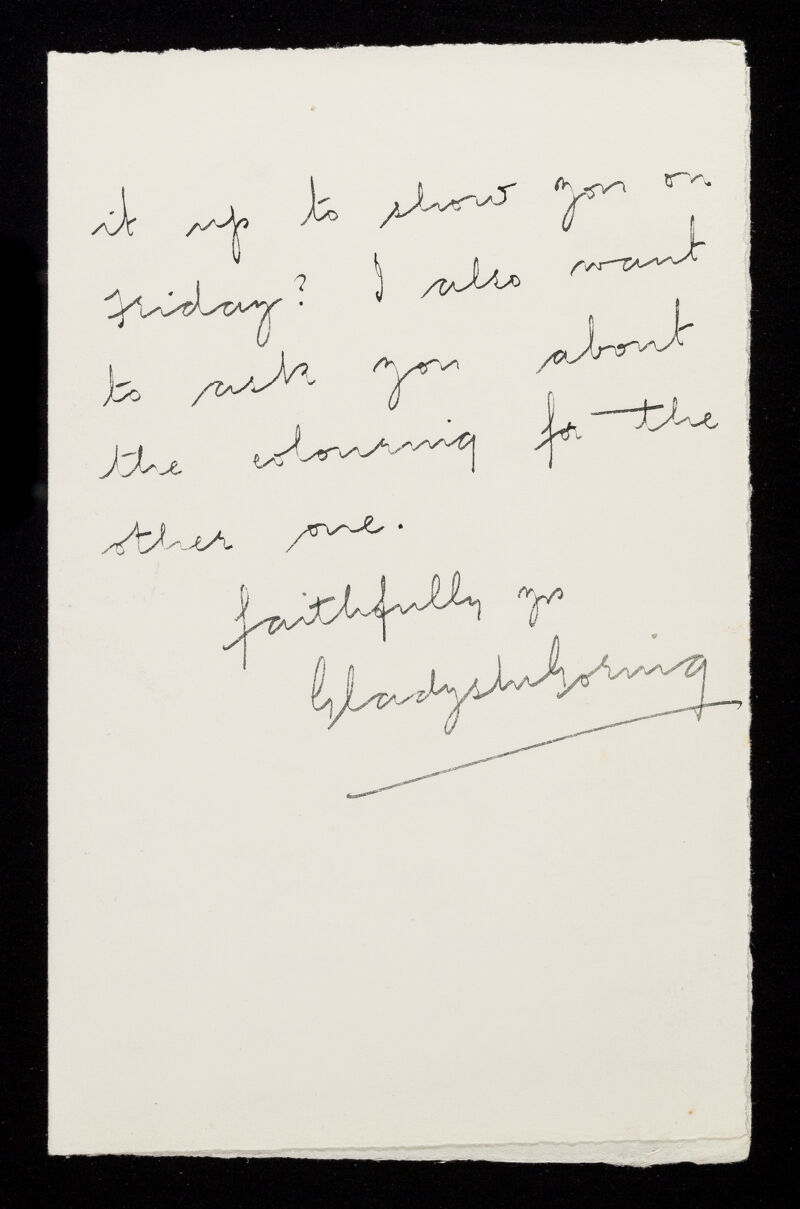 it up to show you on
Friday? I also want
to ask you about
the colouring for the
other one.
faithfully yrs
Gladys Goring